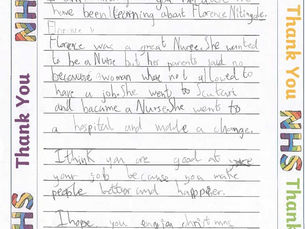 have been learning about Florence Nitingale.
Florence was a great Nurse. She wanted
to be a Nurse but her parents said no
because woman wher not allowed to
have a job. She went to Scutari
and became a Nurse. She went to
a hospital and made a change.
I think you are good at
your job because you make
people better and happyer.
I hope you christmas
Thank You
NHS
Thank You
NHS
Thank You
NHS
Thank